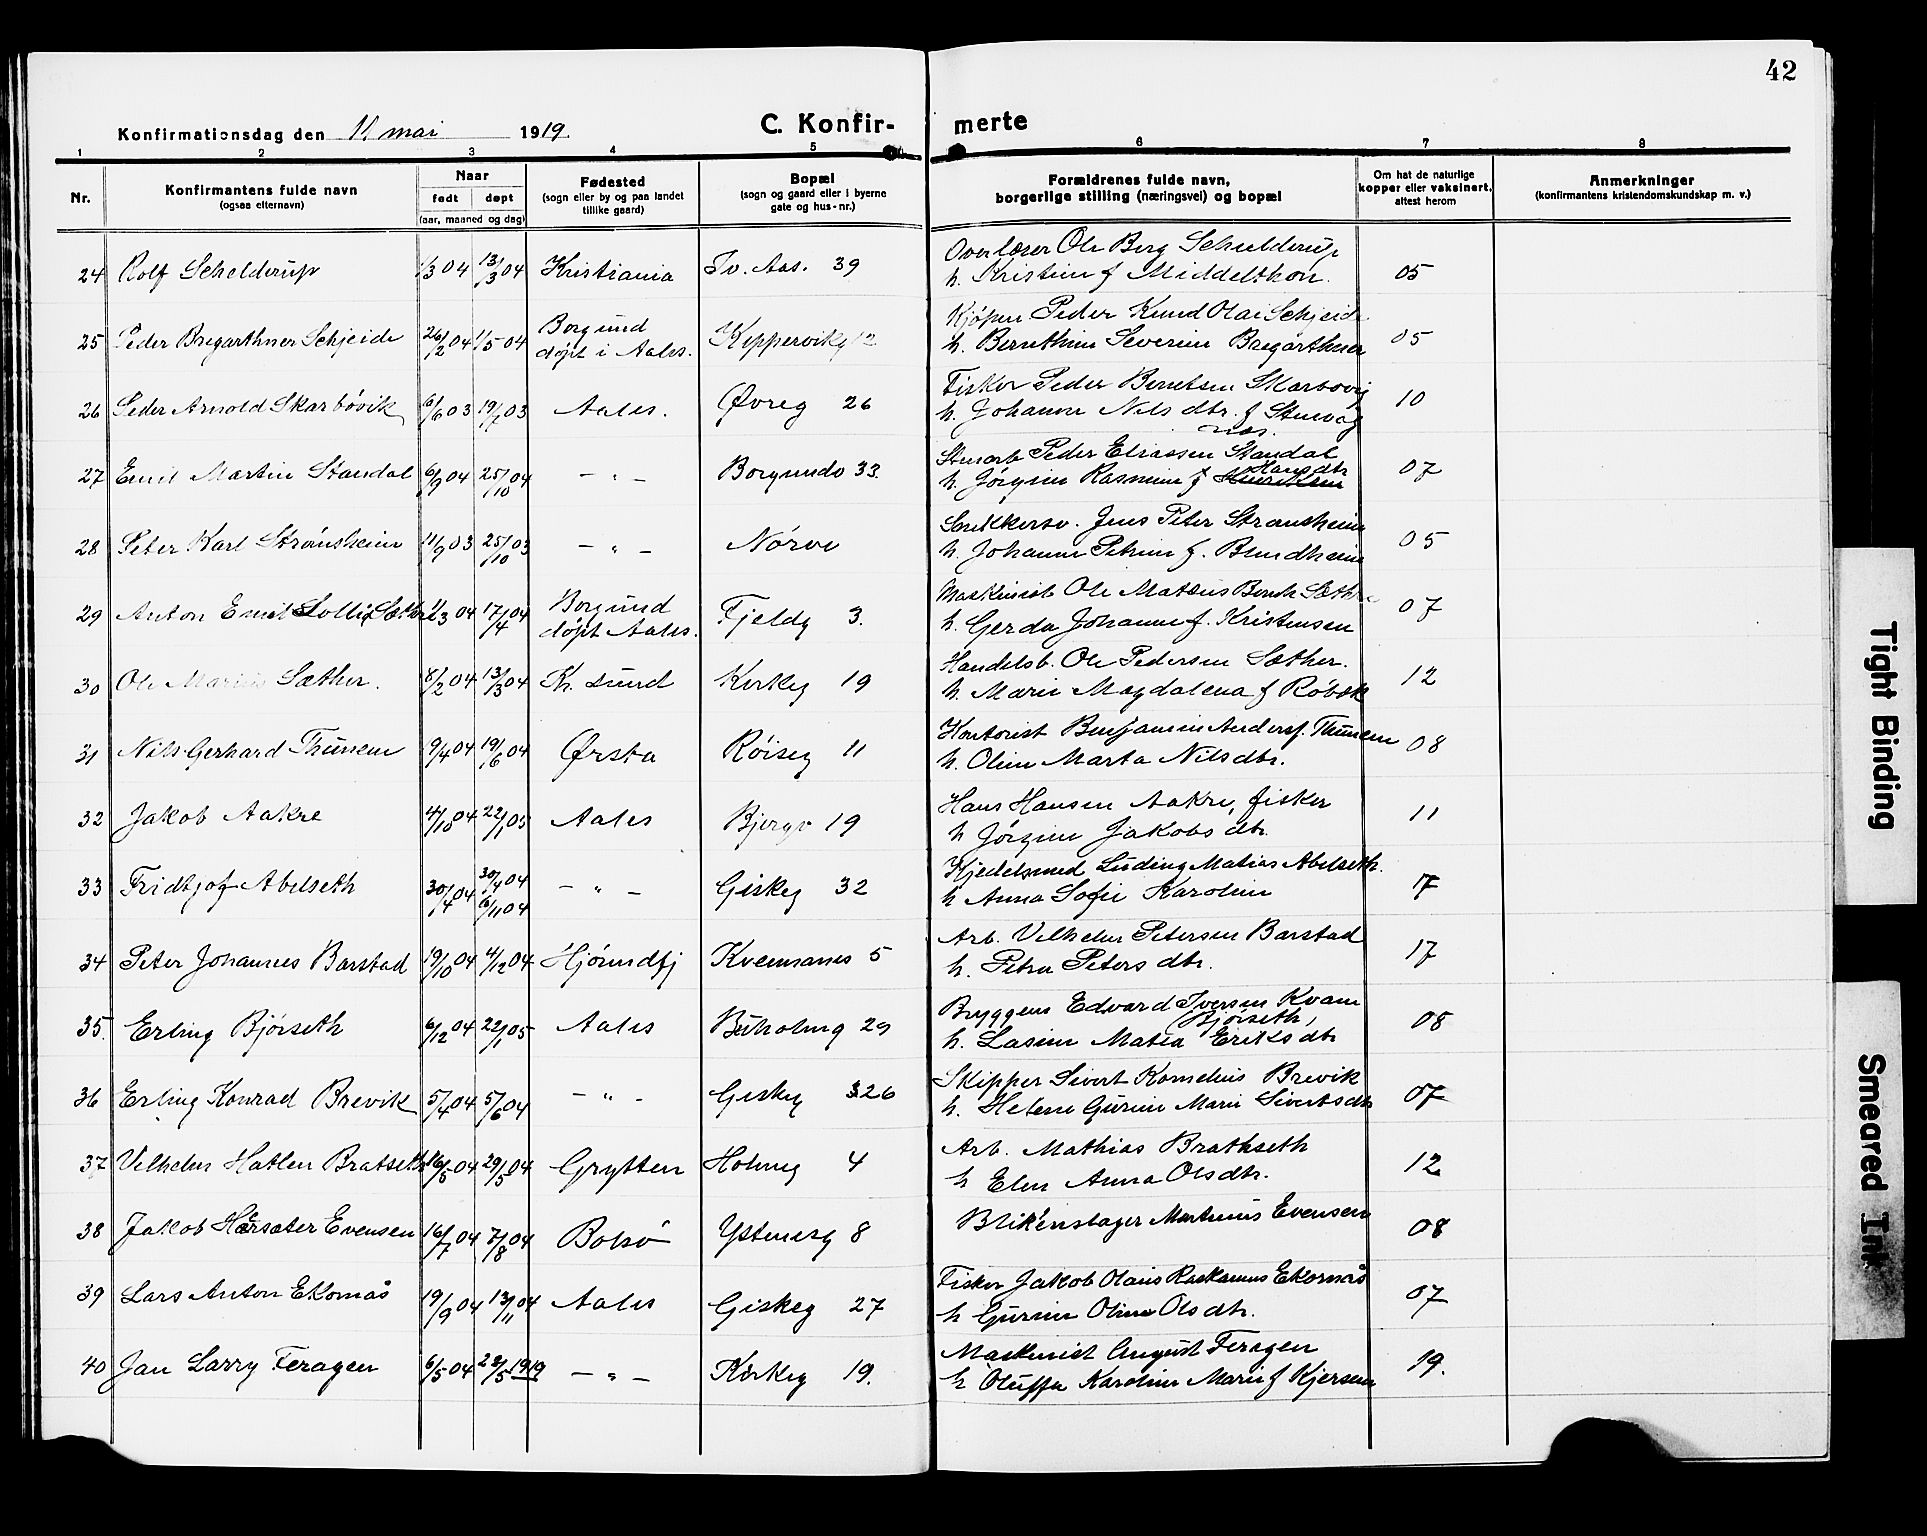 42
Konfirmationsdag den 11. mai 1919.
C. Konfirmerte
1 2 3 4 5 6 7 8
Nr.
Konfirmantens fulde navn
(ogsaa elternavn)
Naar
født døpt
(aar, maaned og dag)
Fødested
(sogn eller by og paa landet
tillike gaard)
Bopæl
(sogn og gaard eller i byerne
gate og hus-nr.)
Forældrenes fulde navn,
borgerlige stilling (næringsvei) og bopæl
Om hat de naturlige
kopper eller vaksinert,
attest herom
Anmerkninger
(konfirmantens kristendomskundskap m. v.)
Overlærer Ole Berg Schelderup
24 Rolf Schelderup 1/3 04 13/3 04 Kristiania Tv. Aas. 39 h. Kristine f Middelthon. 05
Borgund Kjøpm Peder Knud Olai Schjeide
25 Peder Bregarthner Schjeide 26/2 04 1/5 04 døpt i Aales. Keppervikg 12 h. Bernthine Severine Bregarthner 05
Fisker Peder Berntsen Skarbovig
26 Peder Arnold Skarbövik 6/6 03 19/7 03 Aales. Øvreg 26 h. Johanne Nils dbr. f Stenvåg 10
næs.
Stenarb Peder Eliassen Standal
27 Emil Martin Standal 6/9 04 25/10 04 – " – Borgundv 33. h. Jørgine Rasmine f Hansdtr 07
Snekkersv. Jens Peter Strømsheim
28 Peter Karl Strømsheim 11/9 03 25/10 03 – " – Nörve h. Johanne Petrine f. Brundheim 05
Borgund Maskinist Ole Mateus Bernh Sæthre
29 Anton Emil Sollid Sæthre 1/3 04 17/4 04 døpt Aales. Fjeldg 3. h. Gerda Johanne f. Kristensen 07
Handelsb. Ole Pedersen Sæther.
30 Ole Marius Sæther. 8/2 04 13/3 04 Kr. sund Kirkeg 19 h. Marie Magdalena f Röbæk 12
Kontorist Benjamin Andersf. Thunem
31 Nils Gerhard Thunem 9/4 04 19/6 04 Ørsta Röiseg 11 h. Oline Marta Nilsdtr. 08
Hans Hansen Aakre, fisker
32 Jakob Aakre 4/10 04 22/1 05 Aales Bjergv 19 h Jörgine Jakobs dtr. 11
30/4 04 Kjedelsmed Luding Matias Abelseth.
33 Fridtjof Abelseth 30/4 04 6/11 04 – " – Giskeg 32 h Anna Sofie Karoline 17
Arb. Vilhelm Petersen Barstad
34 Peter Johannes Barstad 19/10 04 4/12 04 Hjörundfj Kvennanes 5 h. Petra Peters dtr. 17
Bryggem Edvard Iversen Kvam
(Bjørseth)
35. Erling Björseth 6/12 04 22/1 05 Aales Buholmg 29 h. Lasine Matea Eriks dtr 08
Skipper Sivert Kornelius Brevik
36 Erling Konrad Brevik 5/4 04 5/6 04 – " – Giskeg 32 b h. Helene Gurine Marie Sivertsdtr 07
Arb. Mathias Brathseth
37 Vilhelm Hatlen Bratseth 16/5 04 29/5 04 Grytten Holmeg 4 h Elen Anna Olsdtr. 12
Blikenslager Martinus Evensen
38 Jakob Hersæter Evensen 16/7 04 7/8 04 Bolsö Ystenesg 8 08
Fisker Jakob Olaus Rasmus Ekornås
39 Lars Anton Ekornås 19/9 04 13/11 04 Aales Giskeg 27 h Gurine Oline Olsdtr. 07
Maskinist August Feragen
40 Jan Larry Feragen 6/5 04 28/5 1919 – " – Kirkeg 19. h Oluffa Karoline Marie f Kjersem 19.
Tight Binding
Smeared Ink